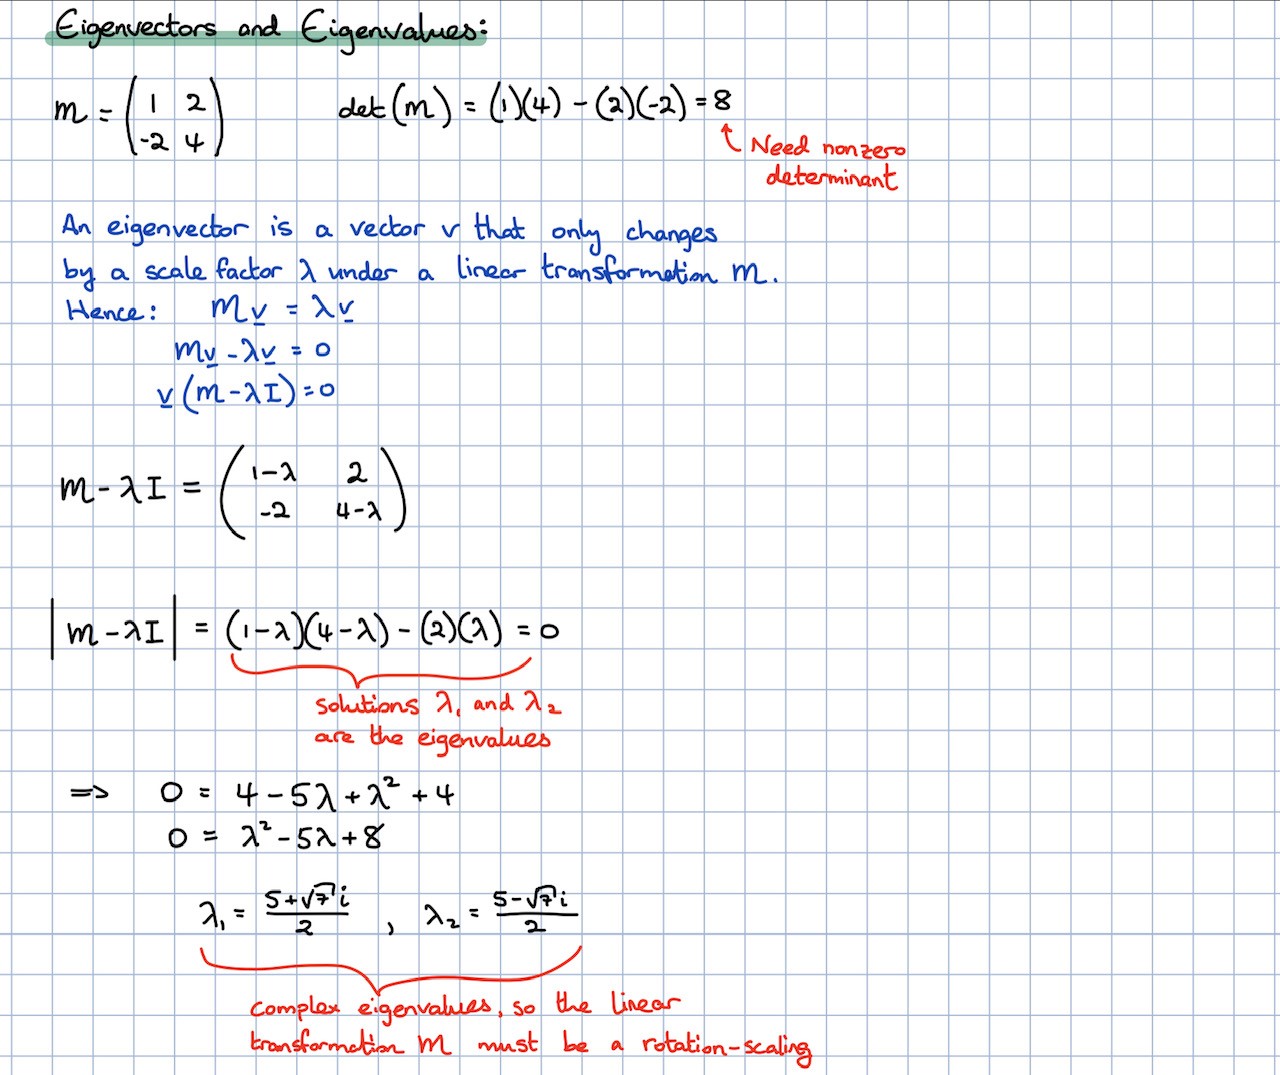 Eigenvectors and Eigenvalues:
m = ( 1 2 ; -2 4 )   det(m) = (1)(4) - (2)(-2) = 8
Need nonzero
determinant
An eigenvector is a vector v that only changes
by a scale factor λ under a linear transformation m.
Hence: mv = λv
mv - λv = 0
v(m - λI) = 0
m - λI = ( 1-λ 2 ; -2 4-λ )
|m - λI| = (1-λ)(4-λ) - (2)(λ) = 0
solutions λ₁ and λ₂
are the eigenvalues
=> 0 = 4 - 5λ + λ² + 4
0 = λ² - 5λ + 8
λ₁ = (5+√7 i)/2 , λ₂ = (5-√7 i)/2
complex eigenvalues, so the linear
transformation m must be a rotation-scaling